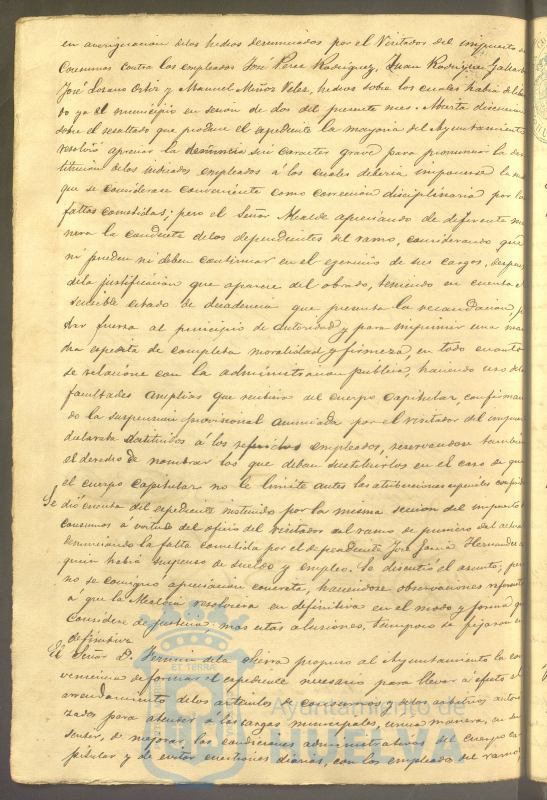 en averiguacion delos hechos denunciados por el Visitador del impuesto de
Consumos contra los empleados José Perez Rodriguez, Juan Rodriguez Gallardo
José Lozano Ortiz y Manuel Muñoz Velez, hechos sobre los cuales habia delibera
do ya el municipio en sesion de dos del presente mes. Abierta discusion
sobre el resultado que produce el espediente la mayoria del Ayuntamiento
resolvió apreciar la denuncia sin caracter grave para pronunciar la des
titucion delos indicados empleados á los cuales deberia imponerse la
que se considerase conveniente como correccion disciplinaria por las
faltas cometidas; pero el Señor Alcalde apreciando de diferente ma
nera la conducta delos dependientes del ramo, considerando que
ni pueden ni deben continuar en el ejercicio de sus cargos, despues
dela justificacion que aparece del obrado, teniendo en cuenta el
sensible estado de decadencia que presenta la recaudacion, p
dar fuerza al principio de autoridad y para imprimir una mar
cha espedita de completa moralidad y firmeza, en todo cuanto
se relacione con la administracion publica, haciendo uso delas
facultades amplias que recibiera del cuerpo capitular, confirman
do la suspension provisional anunciada por el visitador del impuesto
declaraba destituidos á los referidos empleados, reservandose tambien
el derecho de nombrar los que deban sustituirlos en el caso de que
el cuerpo capitular no le limite antes las atribuciones especiales conferidas
Se dió cuenta del espediente instruido por la misma seccion del impuesto de
consumos á virtud del oficio del visitador del ramo de primero del actual
denunciando la falta cometida por el dependiente José Garcia Hernandez á
quien habia suspenso de sueldo y empleo. Se discutió el asunto; pero
no se consignó apreciacion concreta, haciendose observaciones referentes
á que la Alcaldia resolviera en definitiva en el modo y forma que
considere de justicia: mas estas alusiones, tampoco se fijaron en
definitiva
El Señor D. Fermin dela Sierra propuso al Ayuntamiento la con
veniencia de formar el espediente necesario para llevar á efecto el
arrendamiento delos articulos de consumos y delos arbitrios autori
zados para atender á las cargas municipales, unica manera, en su
sentir, de mejorar las condiciones administrativas del cuerpo ca
pitular y de evitar cuestiones diarias, con los empleados del ramo,
Ayuntamiento de
HUELVA